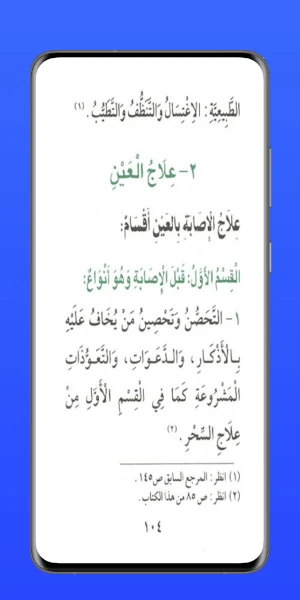 الطَّبِيعِيَّةِ: الِاغْتِسَالُ وَالتَّنَظُّفُ وَالتَّطَيُّبُ. (١)
٢- عِلَاجُ الْعَيْنِ
عِلَاجُ الْإِصَابَةِ بِالعَيْنِ أَقْسَامٌ:
الْقِسْمُ الأَوَّلُ: قَبْلَ الْإِصَابَةِ وَهُوَ أَنْوَاعٌ:
١- التَّحَصُّنُ وَتَحْصِينُ مَنْ يُخَافُ عَلَيْهِ
بِالْأَذْكَارِ، وَالدَّعَوَاتِ، وَالتَّعَوُّذَاتِ
الْمَشْرُوعَةِ كَمَا فِي الْقِسْمِ الْأَوَّلِ مِنْ
عِلَاجِ السِّحْرِ. (٢)
(١) انظر: المرجع السابق ص١٤٥.
(٢) انظر: ص ٨٥ من هذا الكتاب.
١٠٤